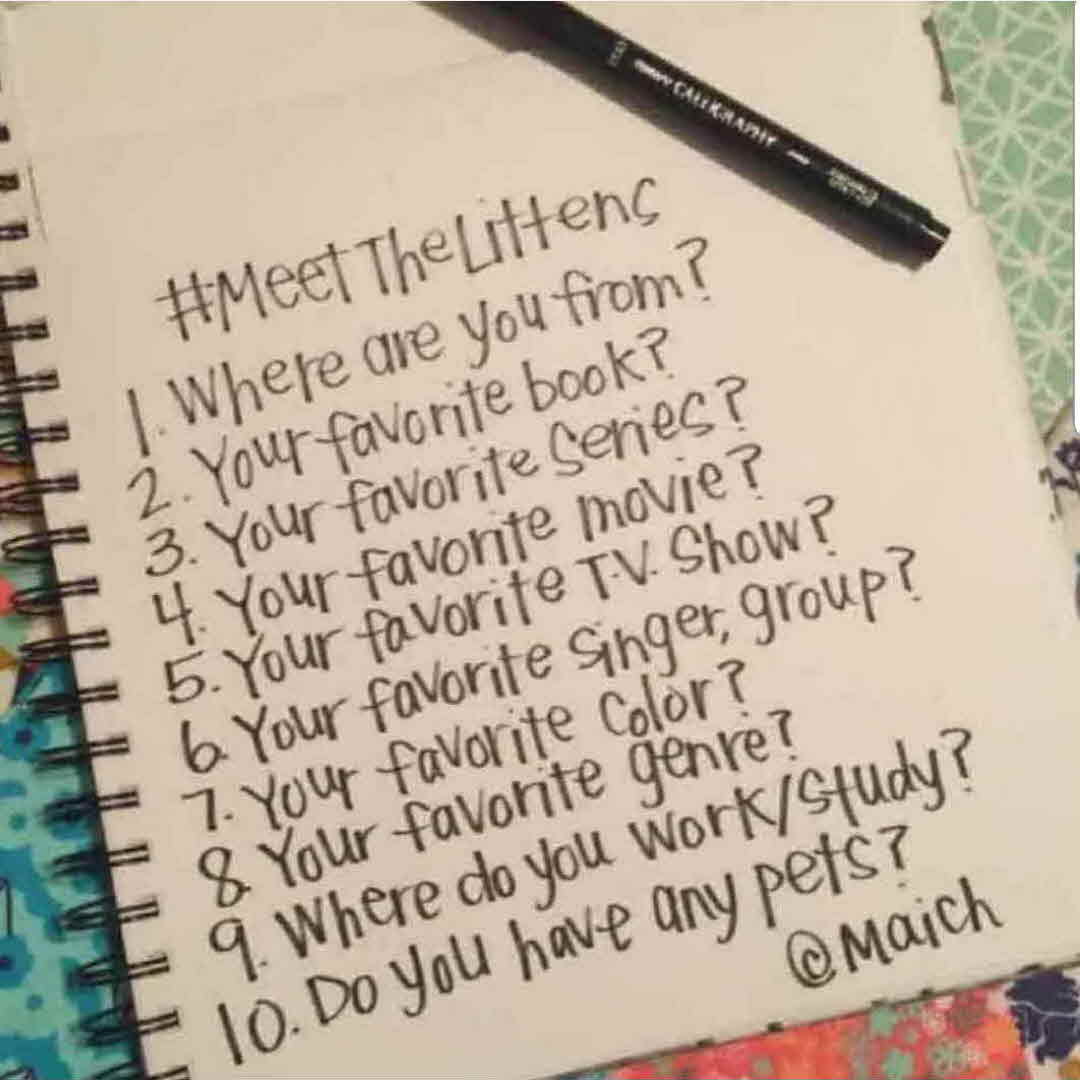 CALLIGRAPHY
#MeetTheLittens
1. Where are you from?
2. Your favorite book?
3. Your favorite series?
4. Your favorite movie?
5. Your favorite T.V. Show?
6 Your favorite singer, group?
7. Your favorite Color?
8 Your favorite genre?
9. Where do you work/study?
10. Do you have any pets?
@Maich